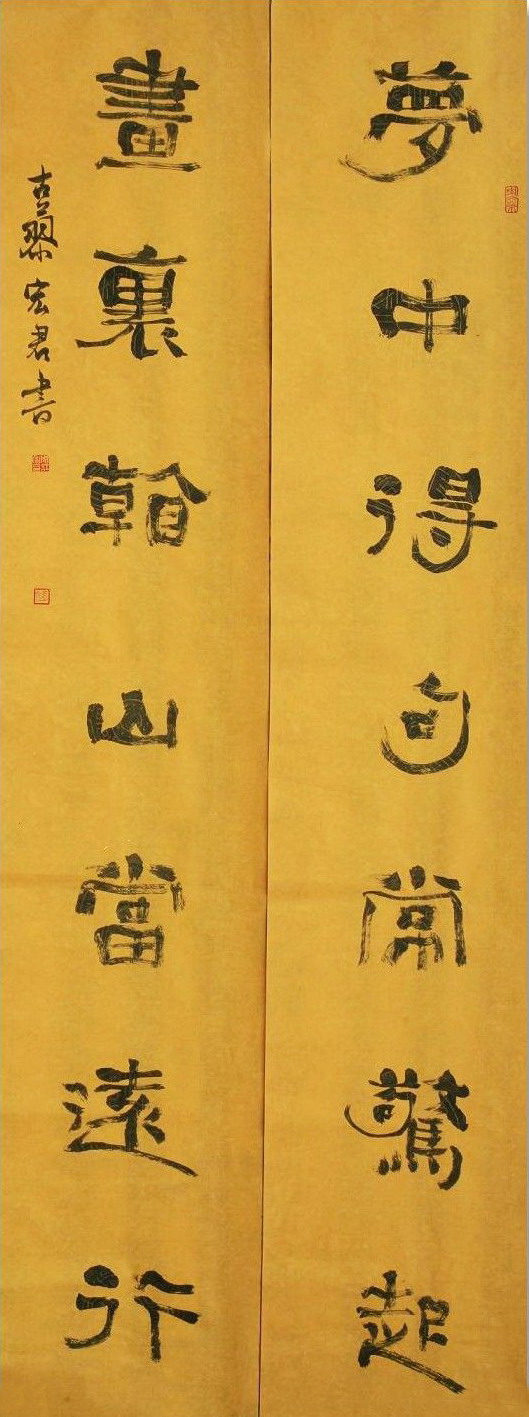 夢中得句常驚起
畫裏看山當遠行
宏君書